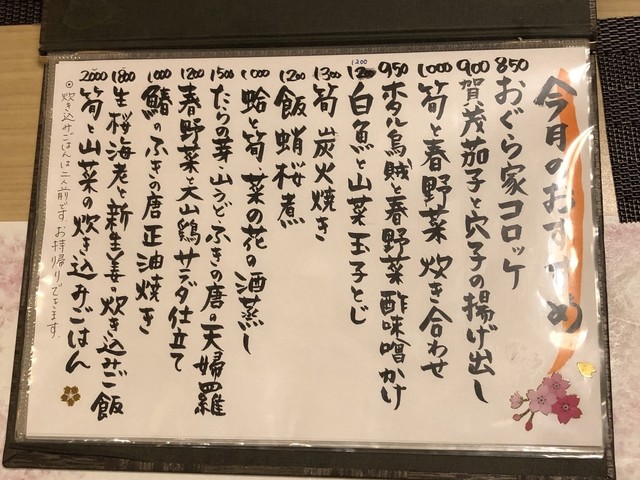 今月のおすすめ
850 おぐら家コロッケ
900 賀茂茄子と穴子の揚げ出し
1000 筍と春野菜 炊き合わせ
950 ホタル烏賊と春野菜酢味噌かけ
1200 白魚と山菜玉子とじ
1300 筍 炭火焼き
1200 飯蛸桜煮
1000 蛤と筍 菜の花の酒蒸し
1500 たらの芽 山うど・ふきの唐の天婦羅
1200 春野菜と大山鶏サラダ仕立て
1000 鰆のふきの唐正油焼き
1800 生桜海老と新生姜の炊き込みご飯
2000 筍と山菜の炊き込みごはん
◎炊き込みごはんは二人前です。お持帰りできます。